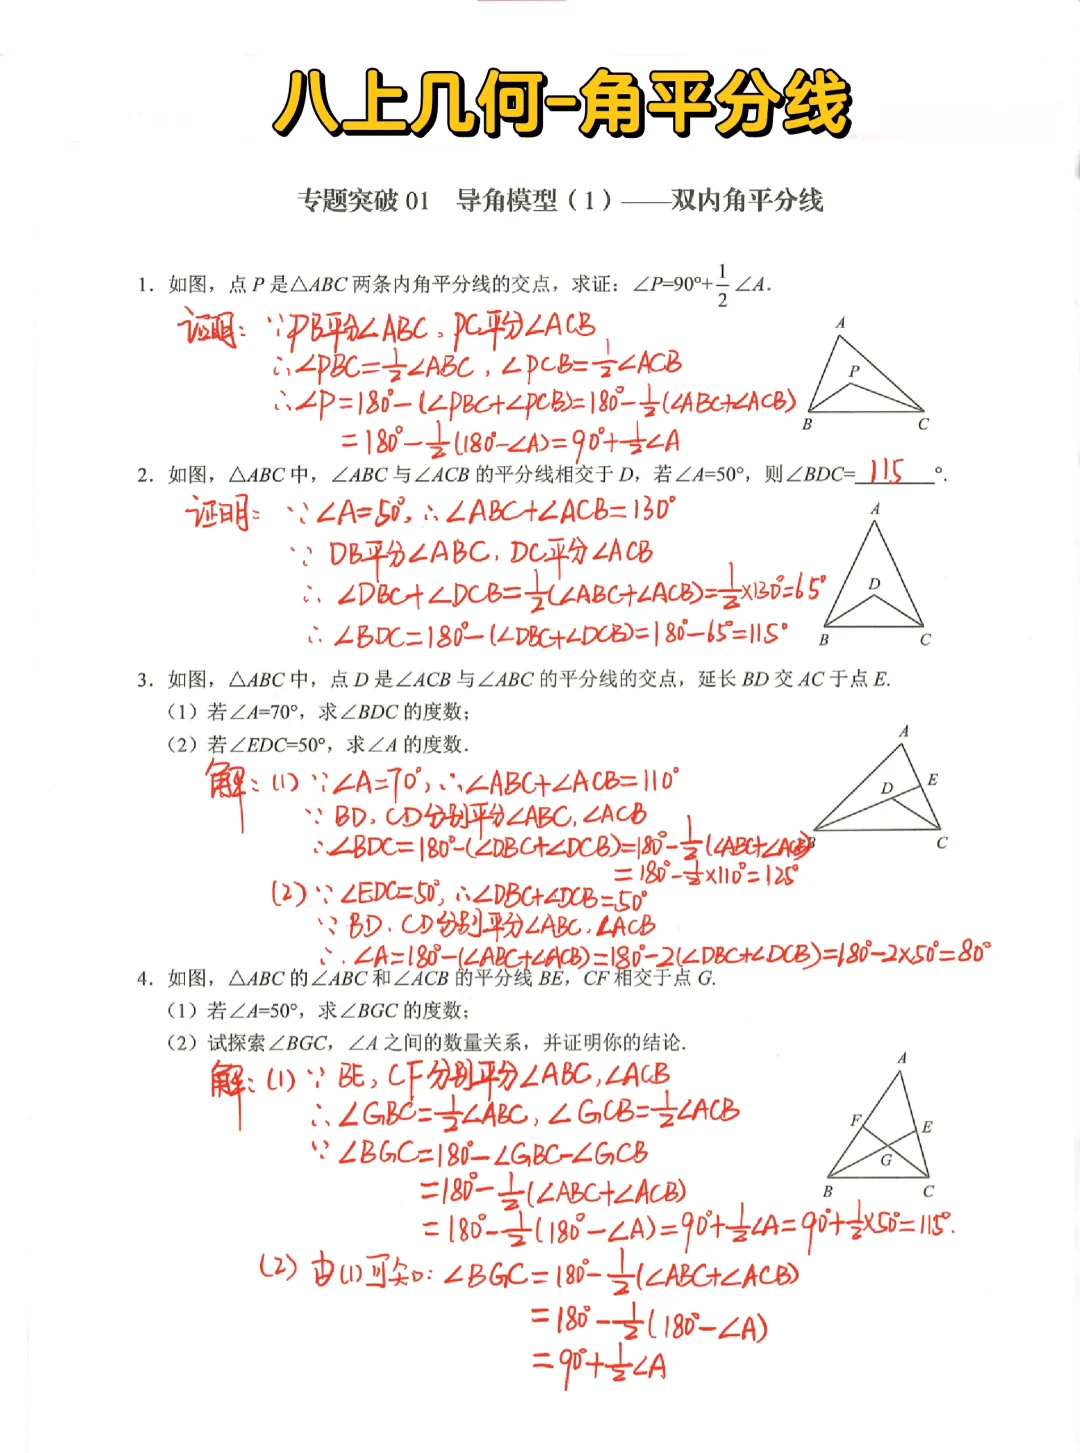 八上几何-角平分线
专题突破 01 导角模型（1）——双内角平分线
1. 如图，点 P 是△ABC 两条内角平分线的交点，求证：∠P=90°+1/2∠A.
证明：∵PB平分∠ABC，PC平分∠ACB
A
∴∠PBC=1/2∠ABC，∠PCB=1/2∠ACB
P
∴∠P=180°-(∠PBC+∠PCB)=180°-1/2(∠ABC+∠ACB)
B C
=180°-1/2(180°-∠A)=90°+1/2∠A
2. 如图，△ABC 中，∠ABC 与∠ACB 的平分线相交于 D，若∠A=50°，则∠BDC=115°.
证明：∵∠A=50°，∴∠ABC+∠ACB=130°
A
∵DB平分∠ABC，DC平分∠ACB
∴∠DBC+∠DCB=1/2(∠ABC+∠ACB)=1/2×130°=65°
D
∴∠BDC=180°-(∠DBC+∠DCB)=180°-65°=115°
B C
3. 如图，△ABC 中，点 D 是∠ACB 与∠ABC 的平分线的交点，延长 BD 交 AC 于点 E.
（1）若∠A=70°，求∠BDC 的度数；
（2）若∠EDC=50°，求∠A 的度数.
A
解：(1)∵∠A=70°，∴∠ABC+∠ACB=110°
D E
∵BD，CD分别平分∠ABC，∠ACB
∴∠BDC=180°-(∠DBC+∠DCB)=180°-1/2(∠ABC+∠ACB)
B C
=180°-1/2×110°=125°
(2)∵∠EDC=50°，∴∠DBC+∠DCB=50°
∵BD，CD分别平分∠ABC，∠ACB
∴∠A=180°-(∠ABC+∠ACB)=180°-2(∠DBC+∠DCB)=180°-2×50°=80°
4. 如图，△ABC 的∠ABC 和∠ACB 的平分线 BE，CF 相交于点 G.
（1）若∠A=50°，求∠BGC 的度数；
（2）试探索∠BGC，∠A 之间的数量关系，并证明你的结论.
A
解：(1)∵BE，CF分别平分∠ABC，∠ACB
∴∠GBC=1/2∠ABC，∠GCB=1/2∠ACB
F E
∵∠BGC=180°-∠GBC-∠GCB
G
=180°-1/2(∠ABC+∠ACB)
B C
=180°-1/2(180°-∠A)=90°+1/2∠A=90°+1/2×50°=115°.
(2)由(1)可知：∠BGC=180°-1/2(∠ABC+∠ACB)
=180°-1/2(180°-∠A)
=90°+1/2∠A